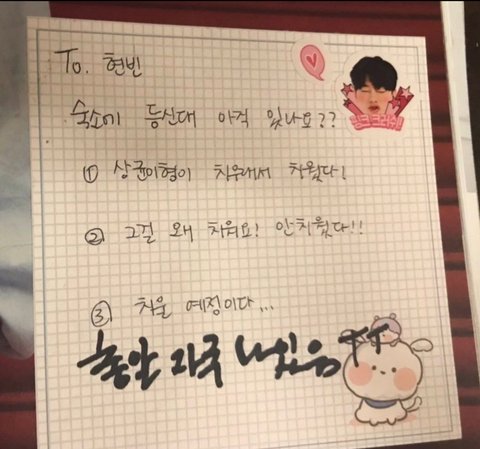 To. 현빈
숙소에 등신대 아직 있나요??
① 상균이형이 치우래서 치웠다!
② 그걸 왜 치워요! 안치웠다!!
③ 치울 예정이다...
자국 나있음 ㅠㅠ